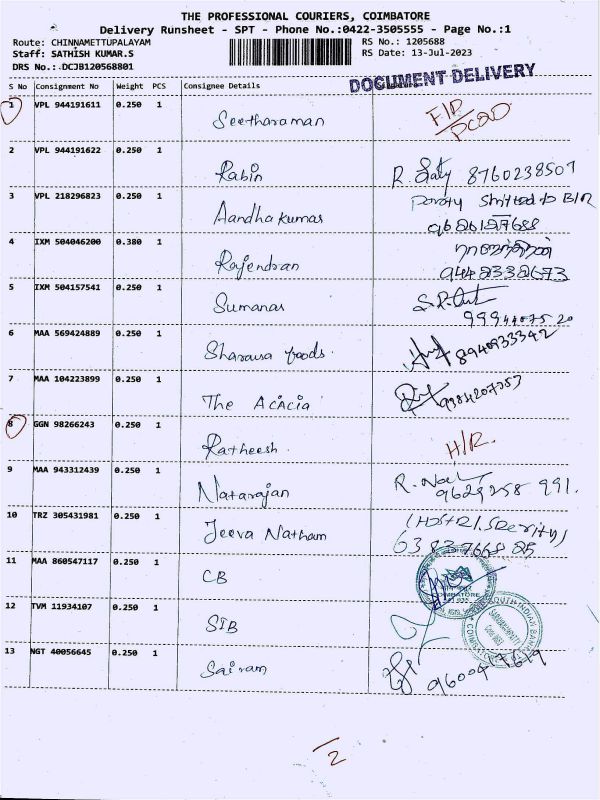 THE PROFESSIONAL COURIERS, COIMBATORE
Delivery Runsheet - SPT - Phone No.:0422-3505555 - Page No.:1
Route: CHINNAMETTUPALAYAM RS No.: 1205688
Staff: SATHISH KUMAR.S RS Date: 13-Jul-2023
DRS No.: DCJB120568801
DOCUMENT DELIVERY
S No Consignment No Weight PCS Consignee Details
1 VPL 944191611 0.250 1 Seetharaman
2 VPL 944191622 0.250 1 Rabin R. 8760238507
3 VPL 218296823 0.250 1 Aandhakumar
4 IXM 504046200 0.380 1 Rajendran 9448338673
5 IXM 504157541 0.250 1 Sumanas
6 MAA 569424889 0.250 1 foods 8940933342
7 MAA 104223899 0.250 1 The Acacia
8 GGN 98266243 0.250 1 Ratheesh H/R.
9 MAA 943312439 0.250 1 Natarajan
10 TRZ 305431981 0.250 1 Jeeva Natham
11 MAA 860547117 0.250 1 CB
COIMBATORE
12 TVM 11934107 0.250 1 SIB
SOUTH INDIAN BANK
13 NGT 40056645 0.250 1 Sairam
2